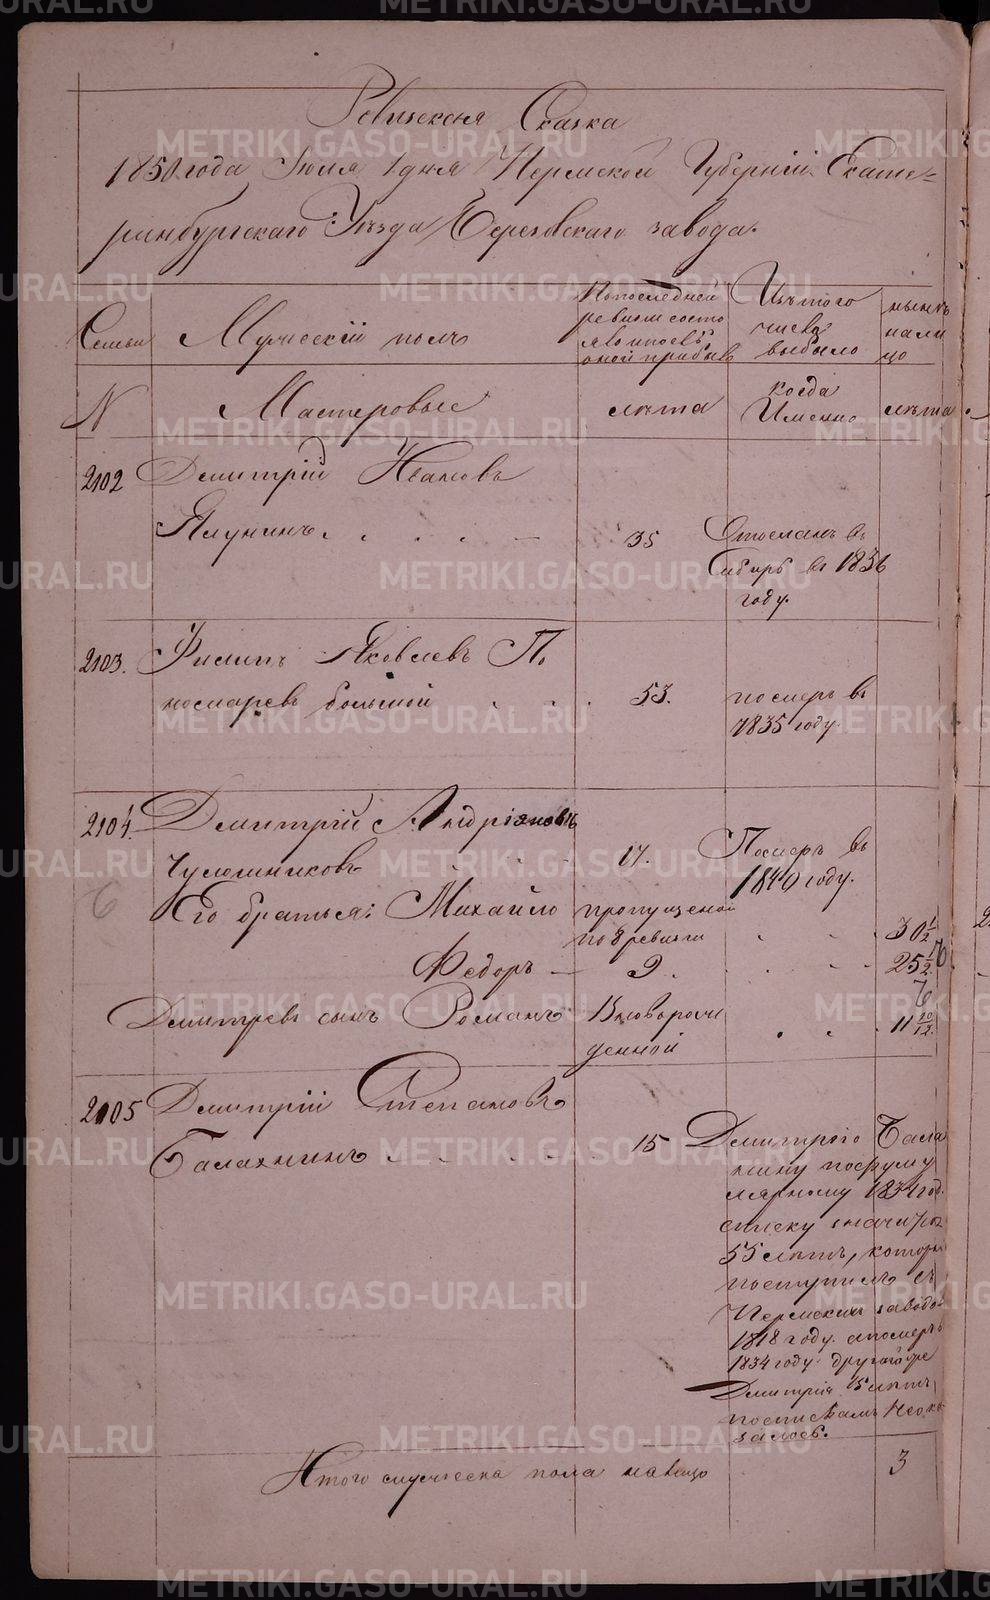 Ревизская Сказка
1850 года Июля 1 дня Пермской Губернии Екате=
ринбургскаго Уѣзда Березовскаго завода.
Семьи
Мужескій полъ
По последней
ревизіи состо
яло и после
оной прибыв
Изъ того
числа
выбыло
нынѣ
нали
цо
N
Мастеровые
лѣта
когда
Именно
лѣта
2102
Дмитрій Ивановъ
Ялунинъ
35
Отосланъ въ
Сибирь въ 1836
году.
2103.
Филипъ Яковлевъ По
номаревъ большой
53.
померъ въ
1835 году.
2104.
Дмитрій Андріяновъ
Чулошниковъ
17.
Померъ въ
1840 году.
6
Его братья: Михайло
пропущеной
по 8 ревизіи
30 1/2
Федоръ
9.
25 1/2
Дмитрея сынъ Романъ
Вноворож
денной
11 10/12
2105
Дмитрій Степановъ
Балахнинъ
15
Дмитрію Бала
хнину по форму
лярному 1834 год.
списку значится
55 лѣтъ, которы
поступилъ съ
Пермскихъ заводов
1818 году. а померъ
1834 году. другой же
Дмитрій 15 лѣтъ
по спискамъ неока
залось.
Итого мужеска пола налицо
3
METRIKI.GASO-URAL.RU